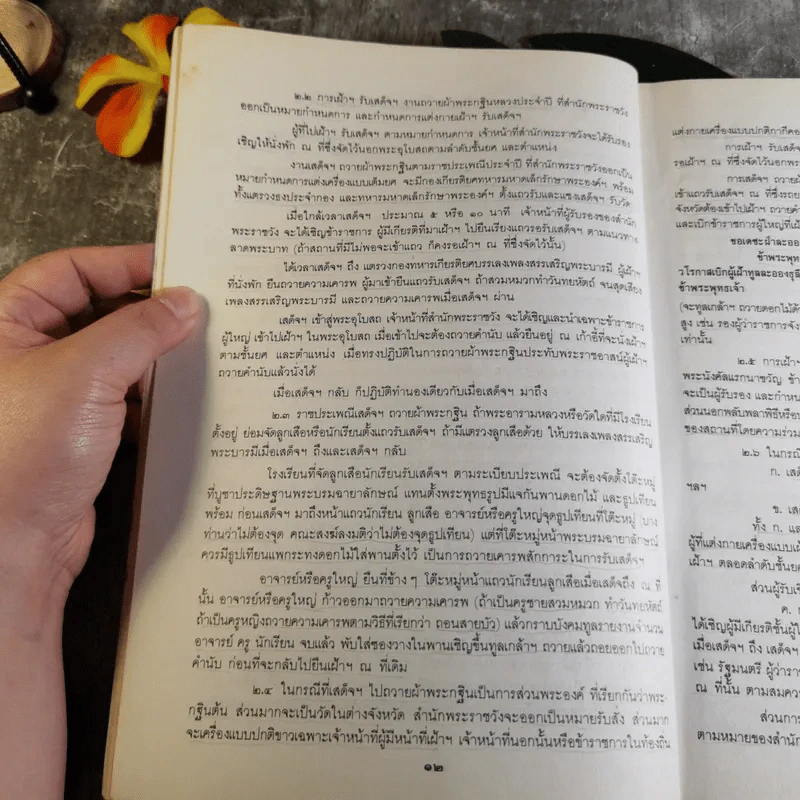 ๒.๒ การเฝ้าฯ รับเสด็จฯ งานถวายผ้าพระกฐินหลวงประจำปี ที่สำนักพระราชวัง
ออกเป็นหมายกำหนดการ และกำหนดการแต่งกายเฝ้าฯ รับเสด็จฯ
ผู้ที่ไปเฝ้าฯ รับเสด็จฯ ตามหมายกำหนดการ เจ้าหน้าที่สำนักพระราชวังจะได้รับรอง
เชิญให้นั่งพัก ณ ที่ซึ่งจัดไว้นอกพระอุโบสถตามลำดับชั้นยศ และตำแหน่ง
งานเสด็จฯ ถวายผ้าพระกฐินตามราชประเพณีประจำปี ที่สำนักพระราชวังออกเป็น
หมายกำหนดการแต่งเครื่องแบบเต็มยศ จะมีกองเกียรติยศทหารมหาดเล็กรักษาพระองค์ฯ พร้อม
ทั้งแตรวงธงประจำกอง และทหารมหาดเล็กรักษาพระองค์ฯ ตั้งแถวรับและแซงเสด็จฯ รับวัด
เมื่อใกล้เวลาเสด็จฯ ประมาณ ๕ หรือ ๑๐ นาที เจ้าหน้าที่ผู้รับรองของสำนัก
พระราชวัง จะได้เชิญข้าราชการ ผู้มีเกียรติที่มาเฝ้าฯ ไปยืนเรียงแถวรอรับเสด็จฯ ตามแนวทาง
ลาดพระบาท (ถ้าสถานที่มีไม่พอจะเข้าแถว ก็คงรอเฝ้าฯ ณ ที่ซึ่งจัดไว้นั้น)
ได้เวลาเสด็จฯ ถึง แตรวงกองทหารเกียรติยศบรรเลงเพลงสรรเสริญพระบารมี ผู้เฝ้าฯ
ที่นั่งพัก ยืนถวายความเคารพ ผู้มาเข้ายืนแถวรับเสด็จฯ ถ้าสวมหมวกทำวันทยหัตถ์ จนสุดเสียง
เพลงสรรเสริญพระบารมี และถวายความเคารพเมื่อเสด็จฯ ผ่าน
เสด็จฯ เข้าสู่พระอุโบสถ เจ้าหน้าที่สำนักพระราชวัง จะได้เชิญและนำเฉพาะข้าราชการ
ผู้ใหญ่ เข้าไปเฝ้าฯ ในพระอุโบสถ เมื่อเข้าไปจะต้องถวายคำนับ แล้วยืนอยู่ ณ เก้าอี้ที่จะนั่งเฝ้าฯ
ตามชั้นยศ และตำแหน่ง เมื่อทรงปฏิบัติในการถวายผ้าพระกฐินประทับพระราชอาสน์ผู้เฝ้าฯ
ถวายคำนับแล้วนั่งได้
เมื่อเสด็จฯ กลับ ก็ปฏิบัติทำนองเดียวกับเมื่อเสด็จฯ มาถึง
๒.๓ ราชประเพณีเสด็จฯ ถวายผ้าพระกฐิน ถ้าพระอารามหลวงหรือวัดใดที่มีโรงเรียน
ตั้งอยู่ ย่อมจัดลูกเสือหรือนักเรียนตั้งแถวรับเสด็จฯ ถ้ามีแตรวงลูกเสือด้วย ให้บรรเลงเพลงสรรเสริญ
พระบารมีเมื่อเสด็จฯ ถึงและเสด็จฯ กลับ
โรงเรียนที่จัดลูกเสือนักเรียนรับเสด็จฯ ตามระเบียบประเพณี จะต้องจัดตั้งโต๊ะหมู่
ที่บูชาประดิษฐานพระบรมฉายาลักษณ์ แทนตั้งพระพุทธรูปมีแจกันพานดอกไม้ และธูปเทียน
พร้อม ก่อนเสด็จฯ มาถึงหน้าแถวนักเรียน ลูกเสือ อาจารย์หรือครูใหญ่จุดธูปเทียนที่โต๊ะหมู่ (บาง
ท่านว่าไม่ต้องจุด คณะสงฆ์ลงมติว่าไม่ต้องจุดธูปเทียน) แต่ที่โต๊ะหมู่หน้าพระบรมฉายาลักษณ์
ควรมีธูปเทียนแพกระทงดอกไม้ใส่พานตั้งไว้ เป็นการถวายเคารพสักการะในการรับเสด็จฯ
อาจารย์หรือครูใหญ่ ยืนที่ข้าง ๆ โต๊ะหมู่หน้าแถวนักเรียนลูกเสือเมื่อเสด็จถึง ณ ที่
นั้น อาจารย์หรือครูใหญ่ ก้าวออกมาถวายความเคารพ (ถ้าเป็นครูชายสวมหมวก ทำวันทยหัตถ์
ถ้าเป็นครูหญิงถวายความเคารพตามวิธีที่เรียกว่า ถอนสายบัว) แล้วกราบบังคมทูลรายงานจำนวน
อาจารย์ ครู นักเรียน จบแล้ว พับใส่ซองวางในพานเชิญขึ้นทูลเกล้าฯ ถวายแล้วถอยออกไปถวาย
คำนับ ก่อนที่จะกลับไปยืนเฝ้าฯ ณ ที่เดิม
๒.๔ ในกรณีที่เสด็จฯ ไปถวายผ้าพระกฐินเป็นการส่วนพระองค์ ที่เรียกกันว่าพระ-
กฐินต้น ส่วนมากจะเป็นวัดในต่างจังหวัด สำนักพระราชวังจะออกเป็นหมายรับสั่ง ส่วนมาก
จะเครื่องแบบปกติขาวเฉพาะเจ้าหน้าที่ผู้มีหน้าที่เฝ้าฯ เจ้าหน้าที่นอกนั้นหรือข้าราชการในท้องถิ่น
๑๒
แต่งกายเครื่องแบบปกติกากีคอ
การเฝ้าฯ รับเสด็จ
รอเฝ้าฯ ณ ที่ซึ่งจัดไว้นอกพระ
การเสด็จฯ ถวายผ้า
เข้าแถวรับเสด็จฯ ณ ที่ซึ่งรถย
จังหวัดต้องเข้าไปเฝ้าฯ ถวายคำ
และเบิกข้าราชการผู้ใหญ่ที่เฝ้า
ขอเดชะฝ่าละออ
ข้าพระพุท
วโรกาสเบิกผู้เฝ้าทูลละอองธุลี
ข้าพระพุทธเจ้า
(จะทูลเกล้าฯ ถวายดอกไม้ด้
สูง เช่น รองผู้ว่าราชการจัง
เท่านั้น
๒.๕ การเฝ้าฯ
พระนังคัลแรกนาขวัญ ข้า
จะเป็นผู้รับรอง และกำหน
ส่วนนอกพลับพลาพิธีหรือ
ของสถานที่โดยความร่วม
๒.๖ ในกรณี
ก. เสด็
ฯลฯ
ข. เส
ทั้ง ก. แล
ผู้ที่แต่งกายเครื่องแบบเต็
เฝ้าฯ ตลอดลำดับชั้นยศ
ส่วนผู้รับเ
ค. เ
ได้เชิญผู้มีเกียรติชั้นผู้ใ
เมื่อเสด็จฯ ถึง เสด็จฯ
เช่น รัฐมนตรี ผู้ว่ารา
ณ ที่นั้น ตามสมคว
ส่วนการ
ตามหมายของสำนัก